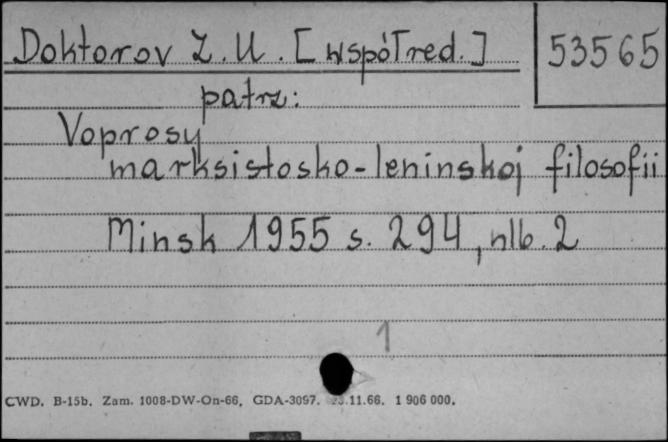 Doktorov Z. U. [współred.] 53565
patrz:
Voprosy
marksistosko-leninskoj filosofii
Minsk 1955 s. 294, nlb. 2
1
CWD. B-15b. Zam. 1008-DW-On-66. GDA-3097. .11.66. 1 906 000.